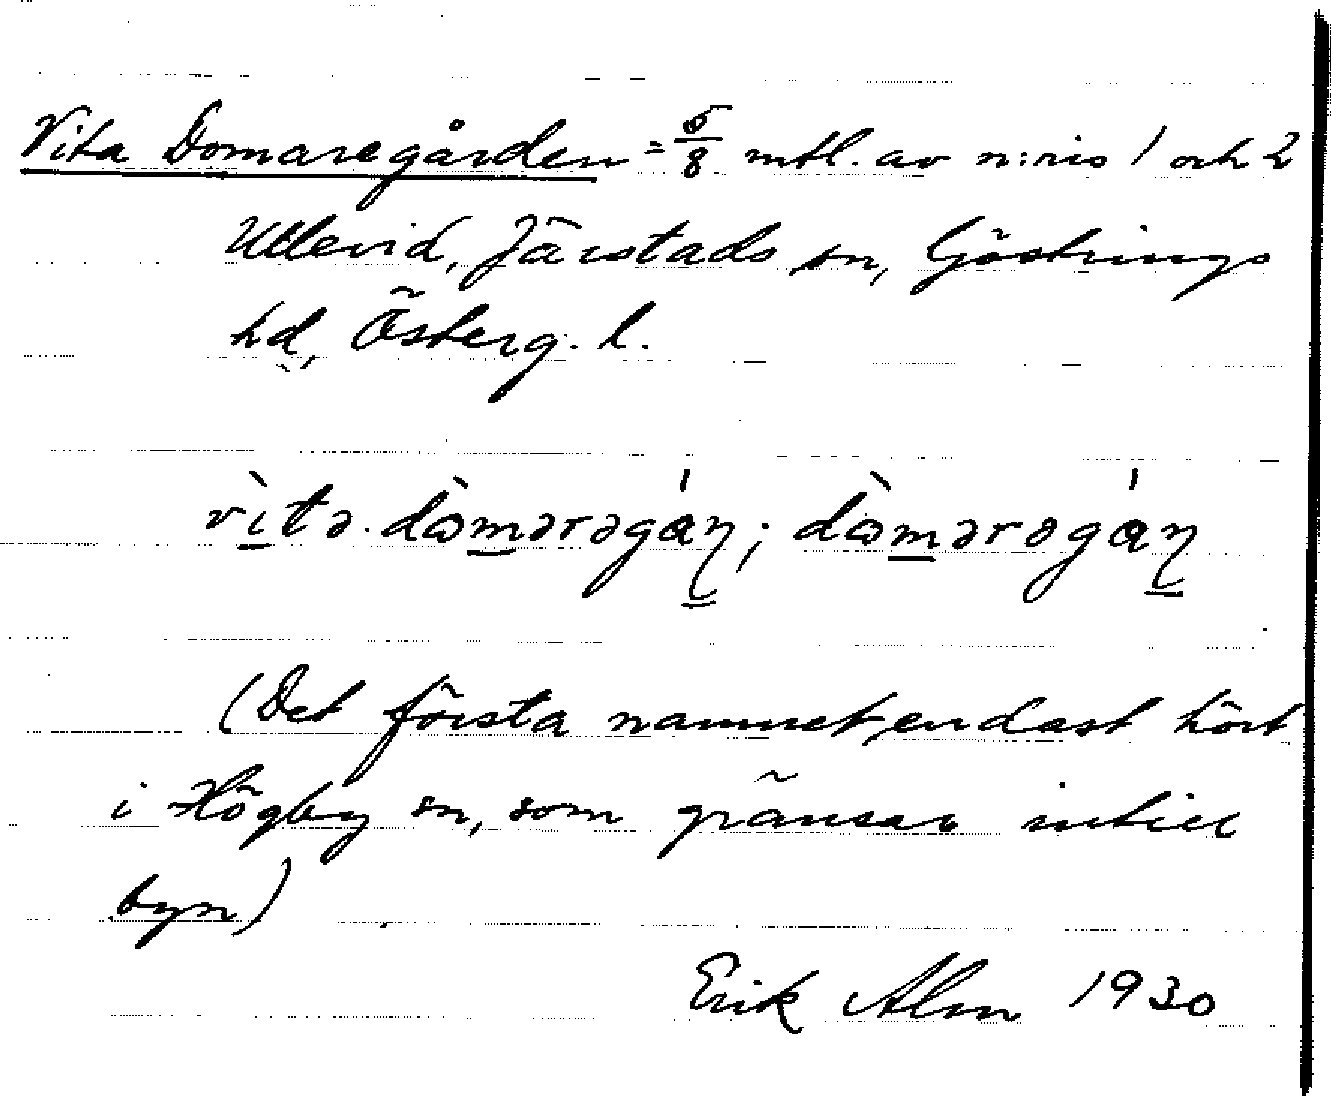 Vita Domaregården = 5/8 mtl. av n:ris 1 och 2
Ullevid, Järstads sn, Göstrings
hd, Österg. l.
vìtə. dòmərəgán; dòmərəgán
(Det första namnet endast hört
i Högby sn, som gränsar intill
byn)
Erik Alm 1930